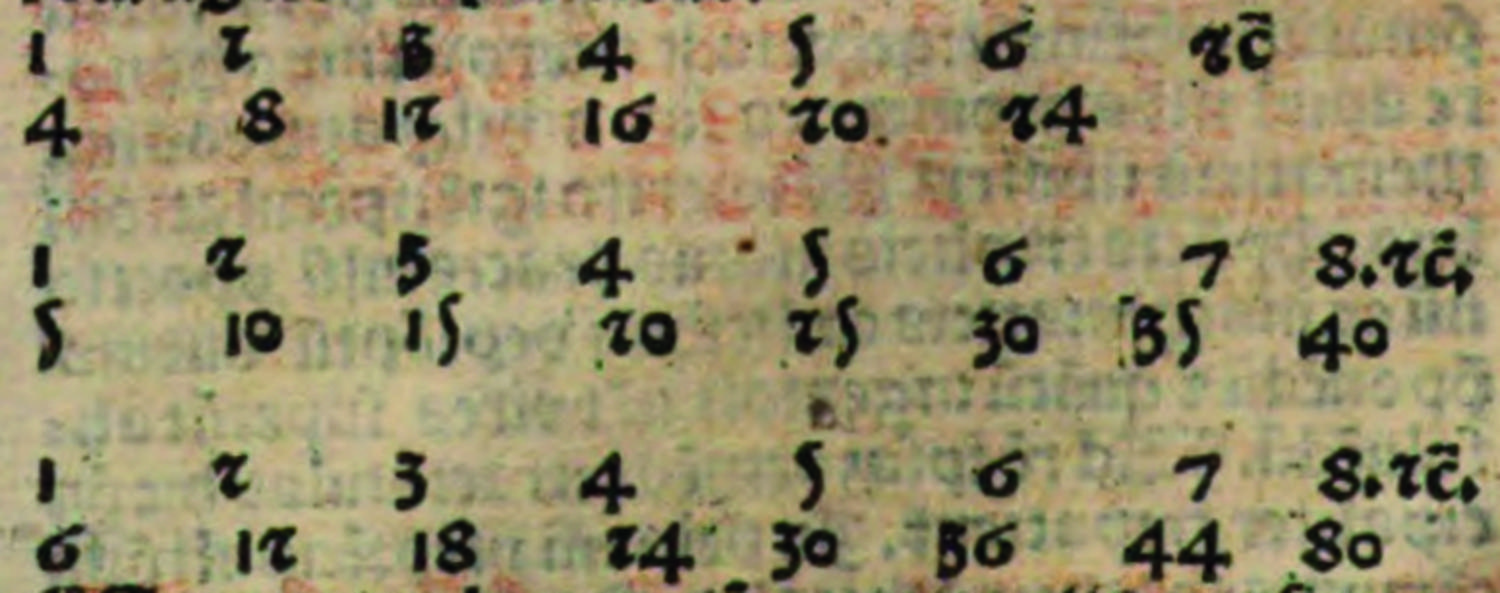 1 2 3 4 5 6 ⁊c̄
4 8 12 16 20. 24
1 2 3 4 5 6 7 8.⁊c̄.
5 10 15 20 25 30 35 40
1 2 3 4 5 6 7 8.⁊c̄.
6 12 18 24 30 36 44 80